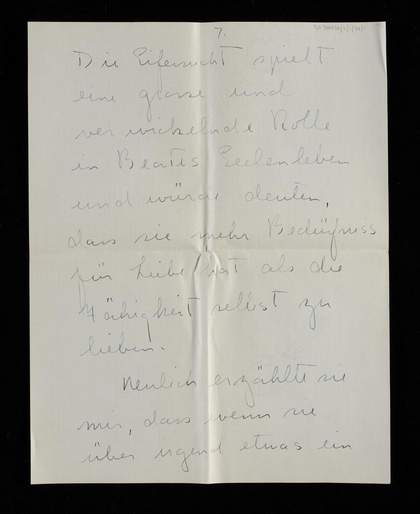 7.
Die Eifersucht spielt
eine grosse und
verwickelnde Rolle
in Beatis Seelenleben
und würde deuten,
dass sie mehr Bedüfniss
für Liebe hat als die
Fähigkeit selbst zu
lieben.
Neulich erzählte sie
mir, dass wenn sie
über irgend etwas ein